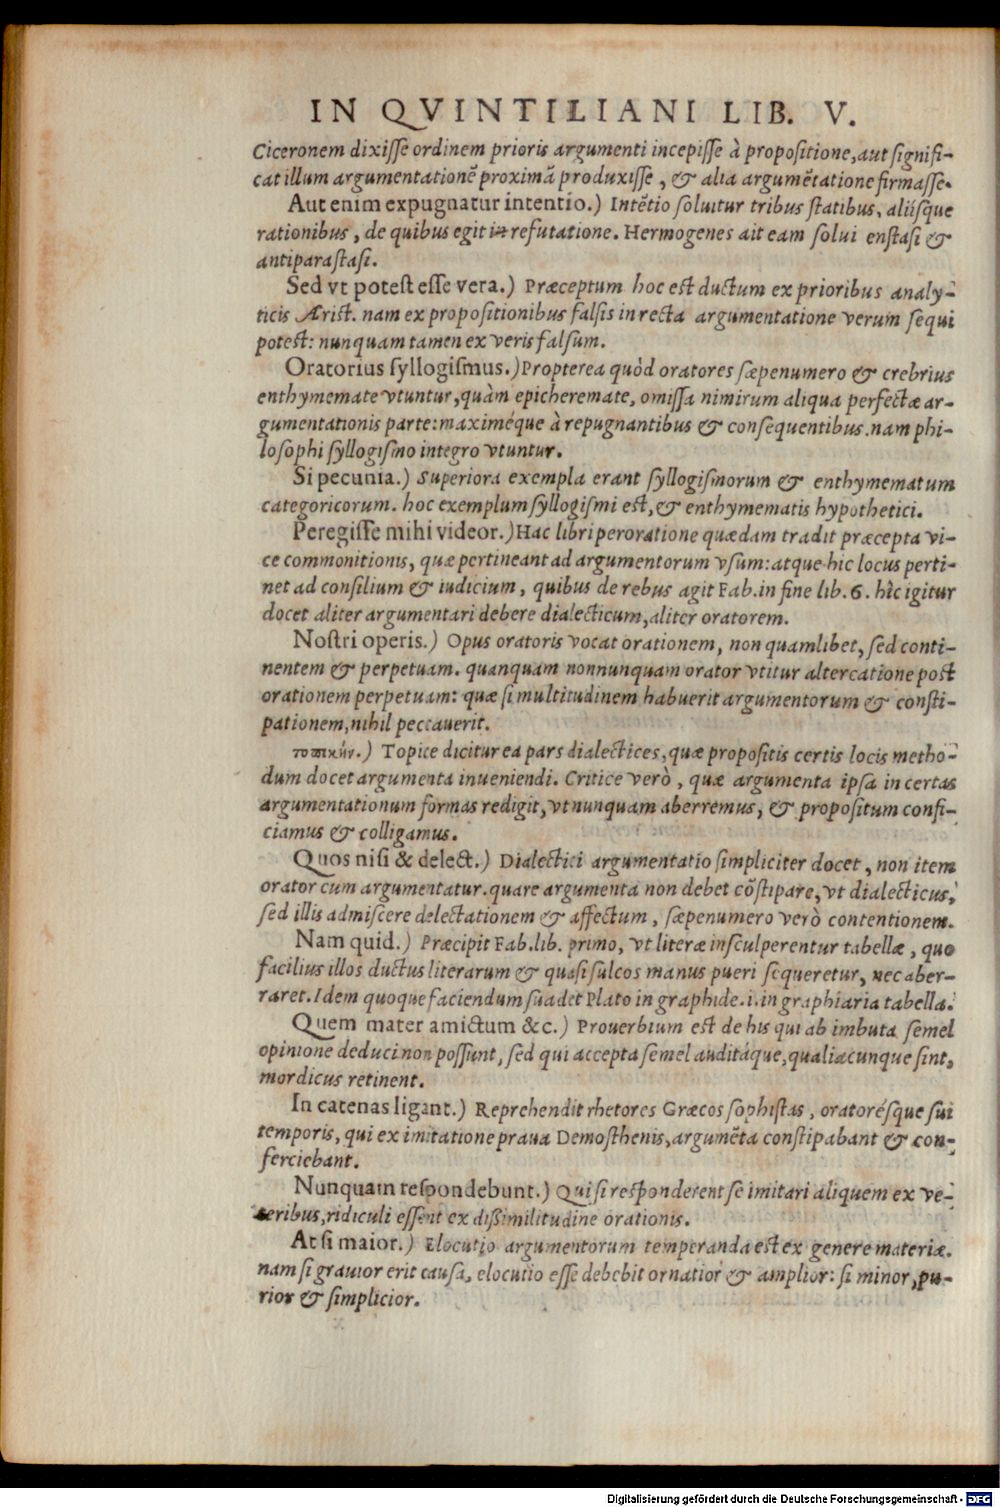 IN QVINTILIANI LIB. V.
Ciceronem dixisse ordinem prioris argumenti incepisse à propositione, aut signifi-
cat illum argumentationẽ proximã produxisse, & alia argumẽtatione firmasse.
Aut enim expugnatur intentio.) Intẽtio soluitur tribus statibus, aliisque
rationibus, de quibus egit in refutatione. Hermogenes ait eam solui enstasi &
antiparastasi.
Sed vt potest esse vera.) Præceptum hoc est ductum ex prioribus analy-
ticis Ærist. nam ex propositionibus falsis in recta argumentatione verum sequi
potest: nunquam tamen ex veris falsum.
Oratorius syllogismus.) Propterea quòd oratores sæpenumero & crebrius
enthymemate vtuntur, quàm epicheremate, omissa nimirum aliqua perfectæ ar-
gumentationis parte: maximéque à repugnantibus & consequentibus. nam phi-
losophi syllogismo integro vtuntur.
Si pecunia.) Superiora exempla erant syllogismorum & enthymematum
categoricorum. hoc exemplum syllogismi est, & enthymematis hypothetici.
Peregisse mihi videor.) Hac libri peroratione quædam tradit præcepta vi-
ce commonitionis, quæ pertineant ad argumentorum vsum: atque hic locus perti-
net ad consilium & iudicium, quibus de rebus agit Fab. in fine lib. 6. hìc igitur
docet aliter argumentari debere dialecticum, aliter oratorem.
Nostri operis.) Opus oratoris vocat orationem, non quamlibet, sed conti-
nentem & perpetuam. quanquam nonnunquam orator vtitur altercatione post
orationem perpetuam: quæ si multitudinem habuerit argumentorum & consti-
pationem, nihil peccauerit.
τοπικὴν.) Topice dicitur ea pars dialectices, quæ propositis certis locis metho-
dum docet argumenta inueniendi. Critice verò, quæ argumenta ipsa in certas
argumentationum formas redigit, vt nunquam aberremus, & propositum confi-
ciamus & colligamus.
Quos nisi & delect.) Dialectici argumentatio simpliciter docet, non item
orator cum argumentatur. quare argumenta non debet cõstipare, vt dialecticus,
sed illis admiscere delectationem & affectum, sæpenumero verò contentionem.
Nam quid.) Præcipit Fab. lib. primo, vt literæ insculperentur tabellæ, quo
facilius illos ductus literarum & quasi sulcos manus pueri sequeretur, nec aber-
raret. Idem quoque faciendum suadet Plato in graphide. i. in graphiaria tabella.
Quem mater amictum &c.) Prouerbium est de his qui ab imbuta semel
opinione deduci non possunt, sed qui accepta semel auditáque, qualiacunque sint,
mordicus retinent.
In catenas ligant.) Reprehendit rhetores Græcos sophistas, oratorésque sui
temporis, qui ex imitatione praua Demosthenis, argumẽta constipabant & con-
ferciebant.
Nunquam respondebunt.) Qui si responderent se imitari aliquem ex ve-
teribus, ridiculi essent ex dissimilitudine orationis.
At si maior.) Elocutio argumentorum temperanda est ex genere materiæ.
nam si grauior erit causa, elocutio esse debebit ornatior & amplior: si minor, pu-
rior & simplicior.
Digitalisierung gefördert durch die Deutsche Forschungsgemeinschaft - DFG